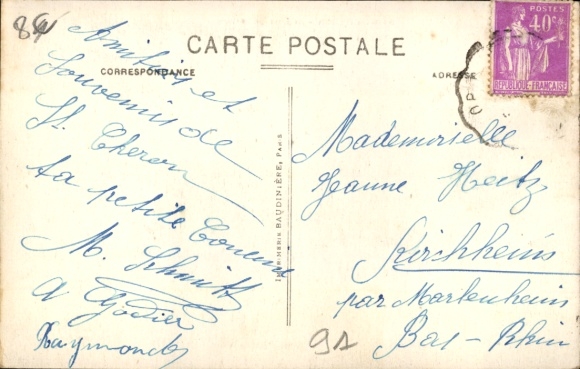 84
CARTE POSTALE
CORRESPONDANCE
ADRESSE
POSTES
40c
REPUBLIQUE FRANÇAISE
Amitiés et
Souvenirs de
St. Theron
ta petite Cousine
M. Schmitt
a Godier
Raymonde
IMPRIMERIE BAUDINIÈRE, PARIS
Mademoiselle
Jeanne Heitz
Kirchheim
par Marlenheim
Bas-Rhin
91